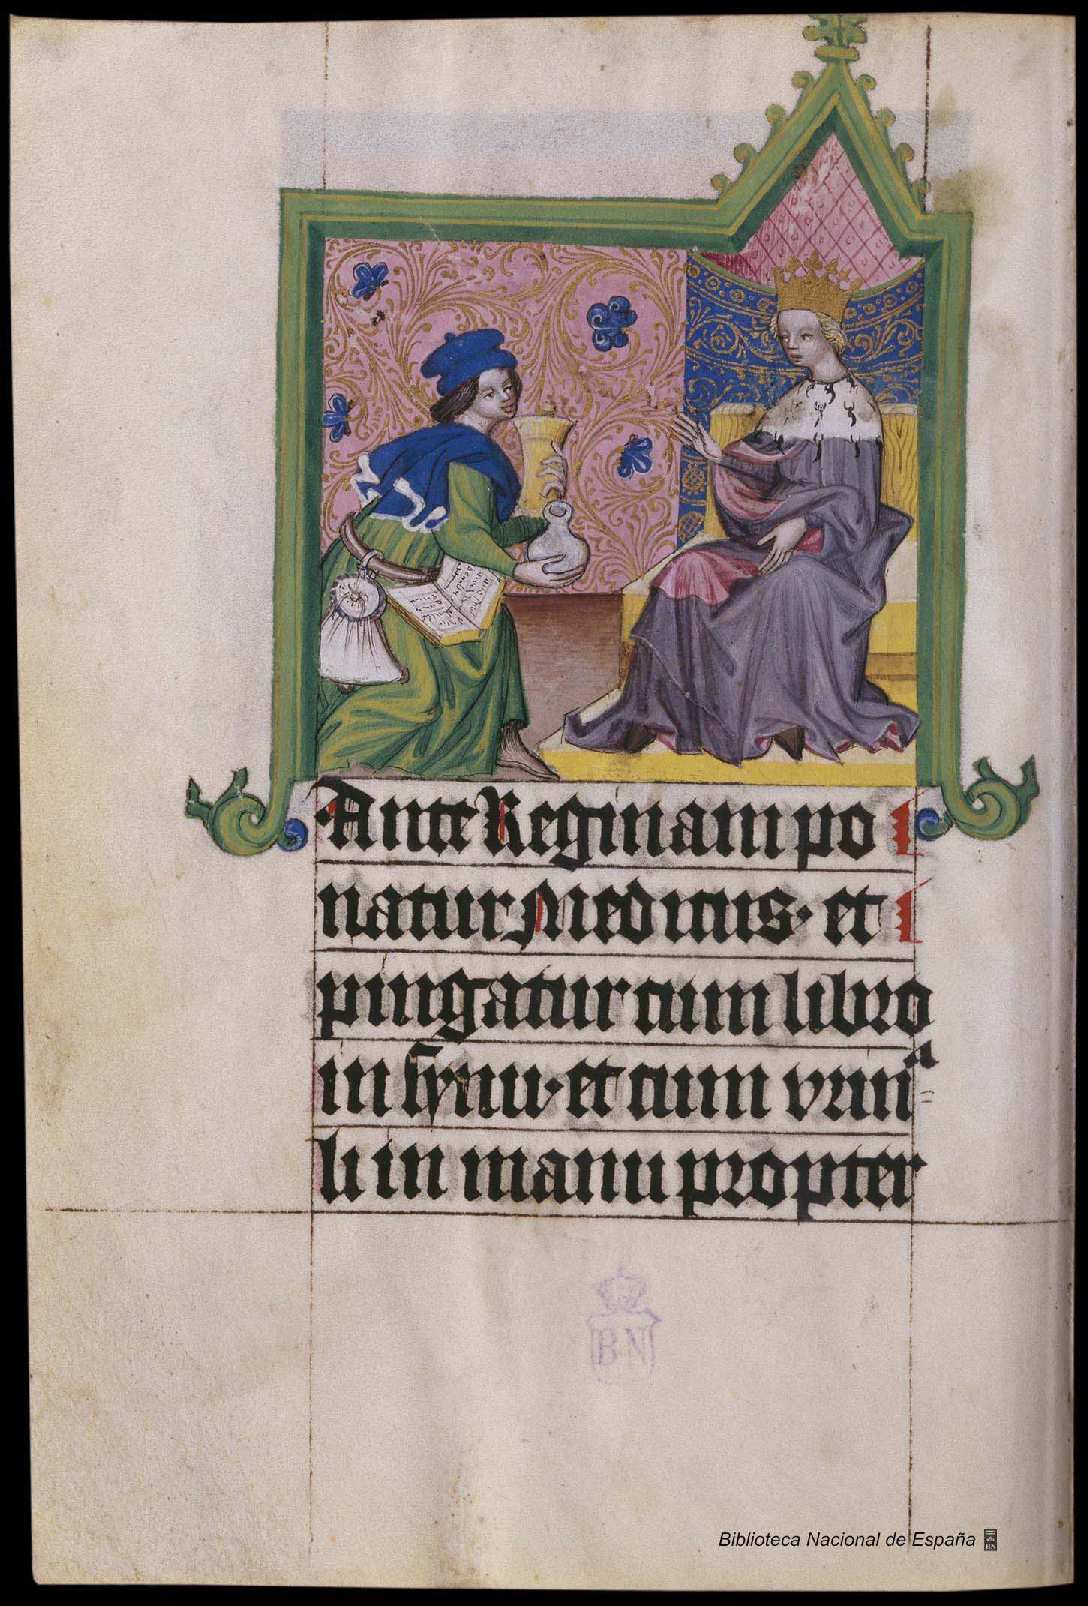 Ante Reginam po
natur Medicus· et
pingatur cum libro
in synu· et cum vrina
li in manu propter
B N
Biblioteca Nacional de España